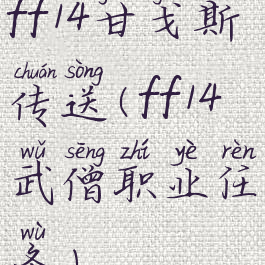 ff14甘戈斯
chuán sòng
传送(ff14
wǔ sēng zhí yè rèn
武僧职业任
wù
务)